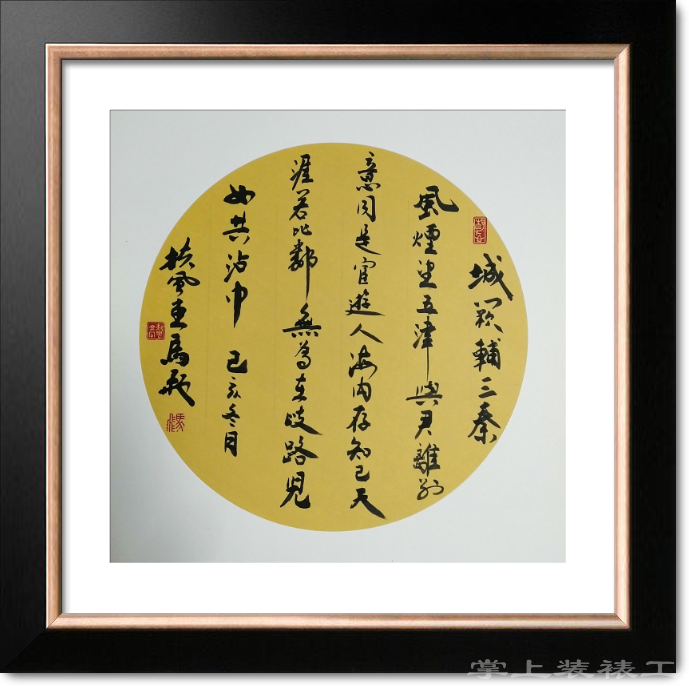 城闕輔三秦
風煙望五津與君離別
意同是宦遊人海内存知己天
涯若比鄰無為在歧路兒
女共沾巾 己亥冬月
扶風
掌上装裱工